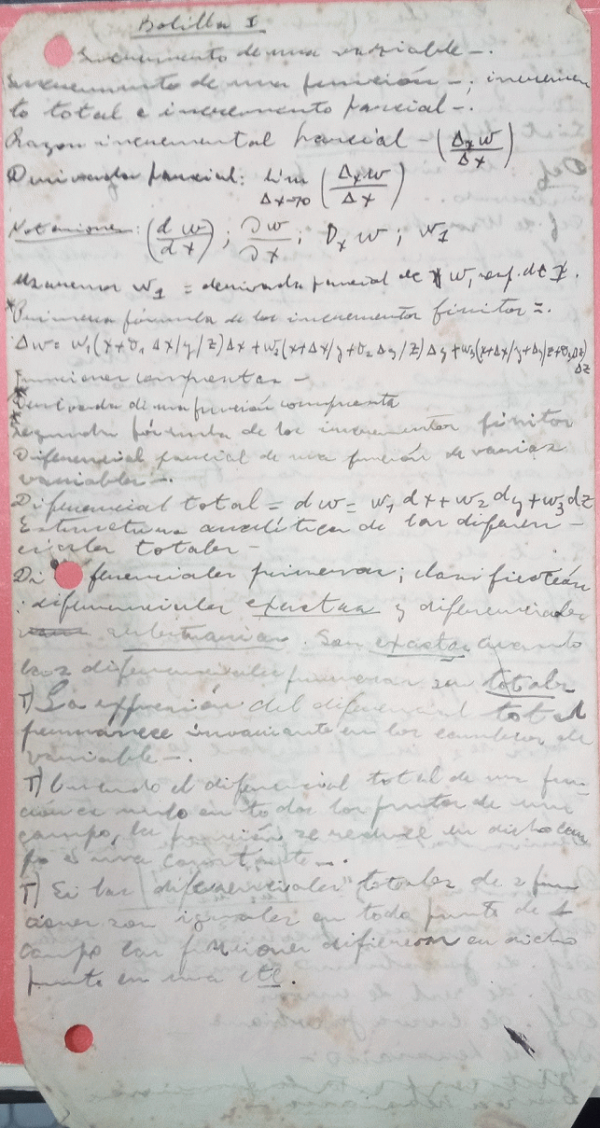 Bolilla I
Incremento de una variable -.
Incremento de una función -; incremen
to total e incremento parcial -.
Razon incremental parcial - (Δₓw/Δx)
Derivada parcial: lim Δx→0 (Δₓw/Δx)
Notaciones: (dw/dx); ∂w/∂x; Dₓ w; w₁
Usaremos w₁ = derivada parcial de w, resp. de x.
Primera fórmula de los incrementos finitos =.
Δw= w₁(x+θ₁ Δx/y/z)Δx+w₂(x+Δx/y+θ₂ Δy/z) Δy+w₃(x+Δx/y+Δy/z+θ₃Δz)Δz
Funciones compuestas -
Derivada de una función compuesta
Segunda fórmula de los incrementos finitos
Diferencial parcial de una función de varias
variables -.
Diferencial total = dw= w₁ dx+w₂ dy+w₃ dz
Estructura analítica de las diferen -
ciales totales -
Di ferenciales primeras; clasificación
: diferenciales exactas y diferenciales
Son exactas cuando
las diferenciales primeras son totales
T) La expresión del diferencial total
permanece invariante en los cambios de
variable -.
T) Cuando el diferencial total de una fun-
ción es nulo en todos los puntos de un
campo, la función se reduce en dicho cam
po a una constante -.
T) Si las "diferenciales" totales de 2 fun
ciones son iguales en todo punto de 1
campo las funciones difieren en dicho
punto en una cte.